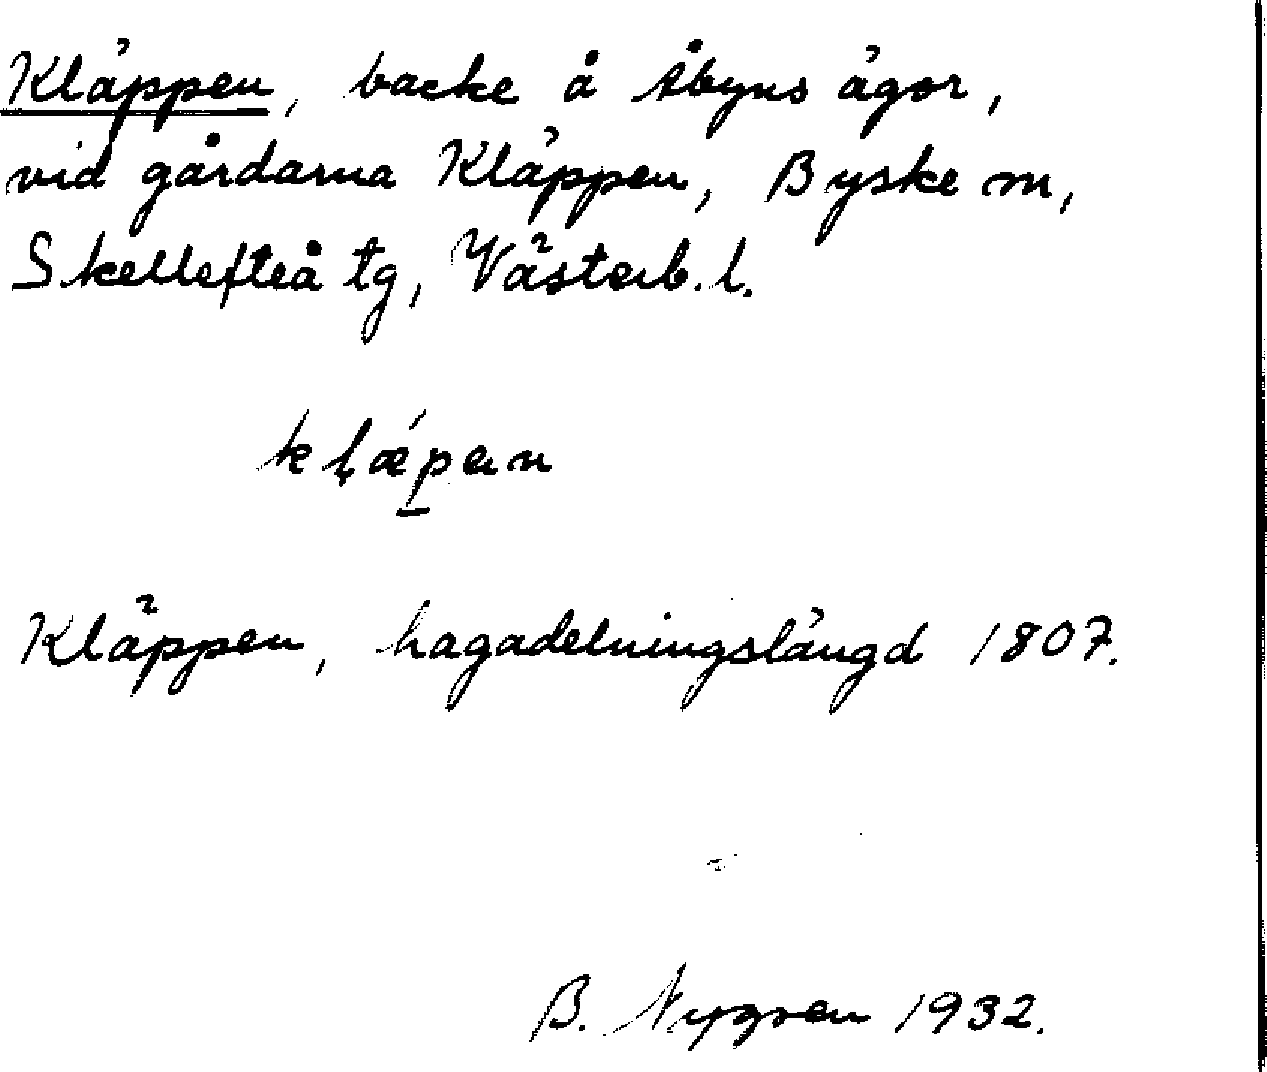 Kläppen, backe å Åbyns ägor,
vid gårdarna Kläppen, Byske sn,
Skellefteå tg, Västerb. l.
kḷǽp̲en
Kläppen, hagadelningslängd 1807.
B. Nygren 1932.